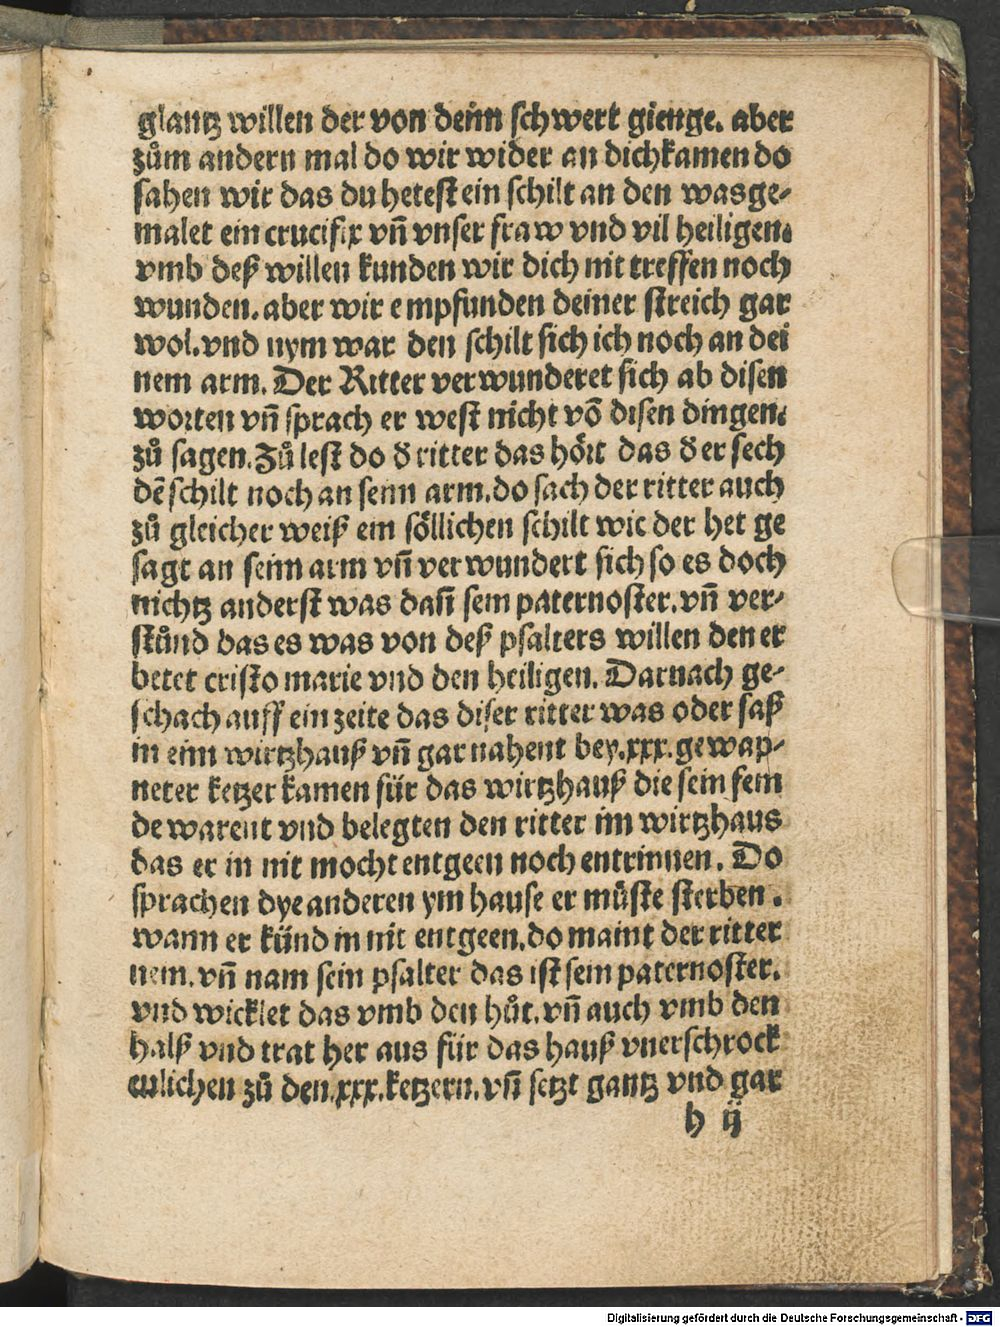 glantz willen der von dein schwert gienge. aber
zům andern mal do wir wider an dich kamen do
sahen wir das du hetest ein schilt an den was ge⸗
malet ein crucifix vñ vnser fraw vnd vil heiligen.
vmb deß willen kunden wir dich nit treffen noch
wunden. aber wir empfunden deiner streich gar
wol. vnd nym war den schilt sich ich noch an dei
nem arm. Der Ritter verwunderet sich ab disen
worten vñ sprach er west nicht võ disen dingen.
zů sagen. Zů lest do d̕ ritter das hört das d̕ er sech
dē schilt noch an seim arm. do sach der ritter auch
zů gleicher weiß ein söllichen schilt wie der het ge
sagt an seim arm vñ verwundert sich so es doch
nichtz anderst was dañ sein paternoster. vñ ver⸗
stůnd das es was von deß psalters willen den er
betet cristo marie vnd den heiligen. Darnach ge⸗
schach auff ein zeite das diser ritter was oder saß
in eim wirtzhauß vñ gar nahent bey .xxx. gewap⸗
neter ketzer kamen für das wirtzhauß die sein fein
de warent vnd belegten den ritter im wirtzhaus
das er in nit mocht entgeen noch entrinnen. Do
sprachen dye anderen ym hause er müste sterben.
wann er künd in nit entgeen. do maint der ritter
nein. vñ nam sein psalter das ist sein paternoster.
vnd wicklet das vmb den hůt. vñ auch vmb den
halß vnd trat her aus für das hauß vnerschrock
enlichen zů den .xxx. ketzern. vñ setzt gantz vnd gar
h ij
Digitalisierung gefördert durch die Deutsche Forschungsgemeinschaft - DFG